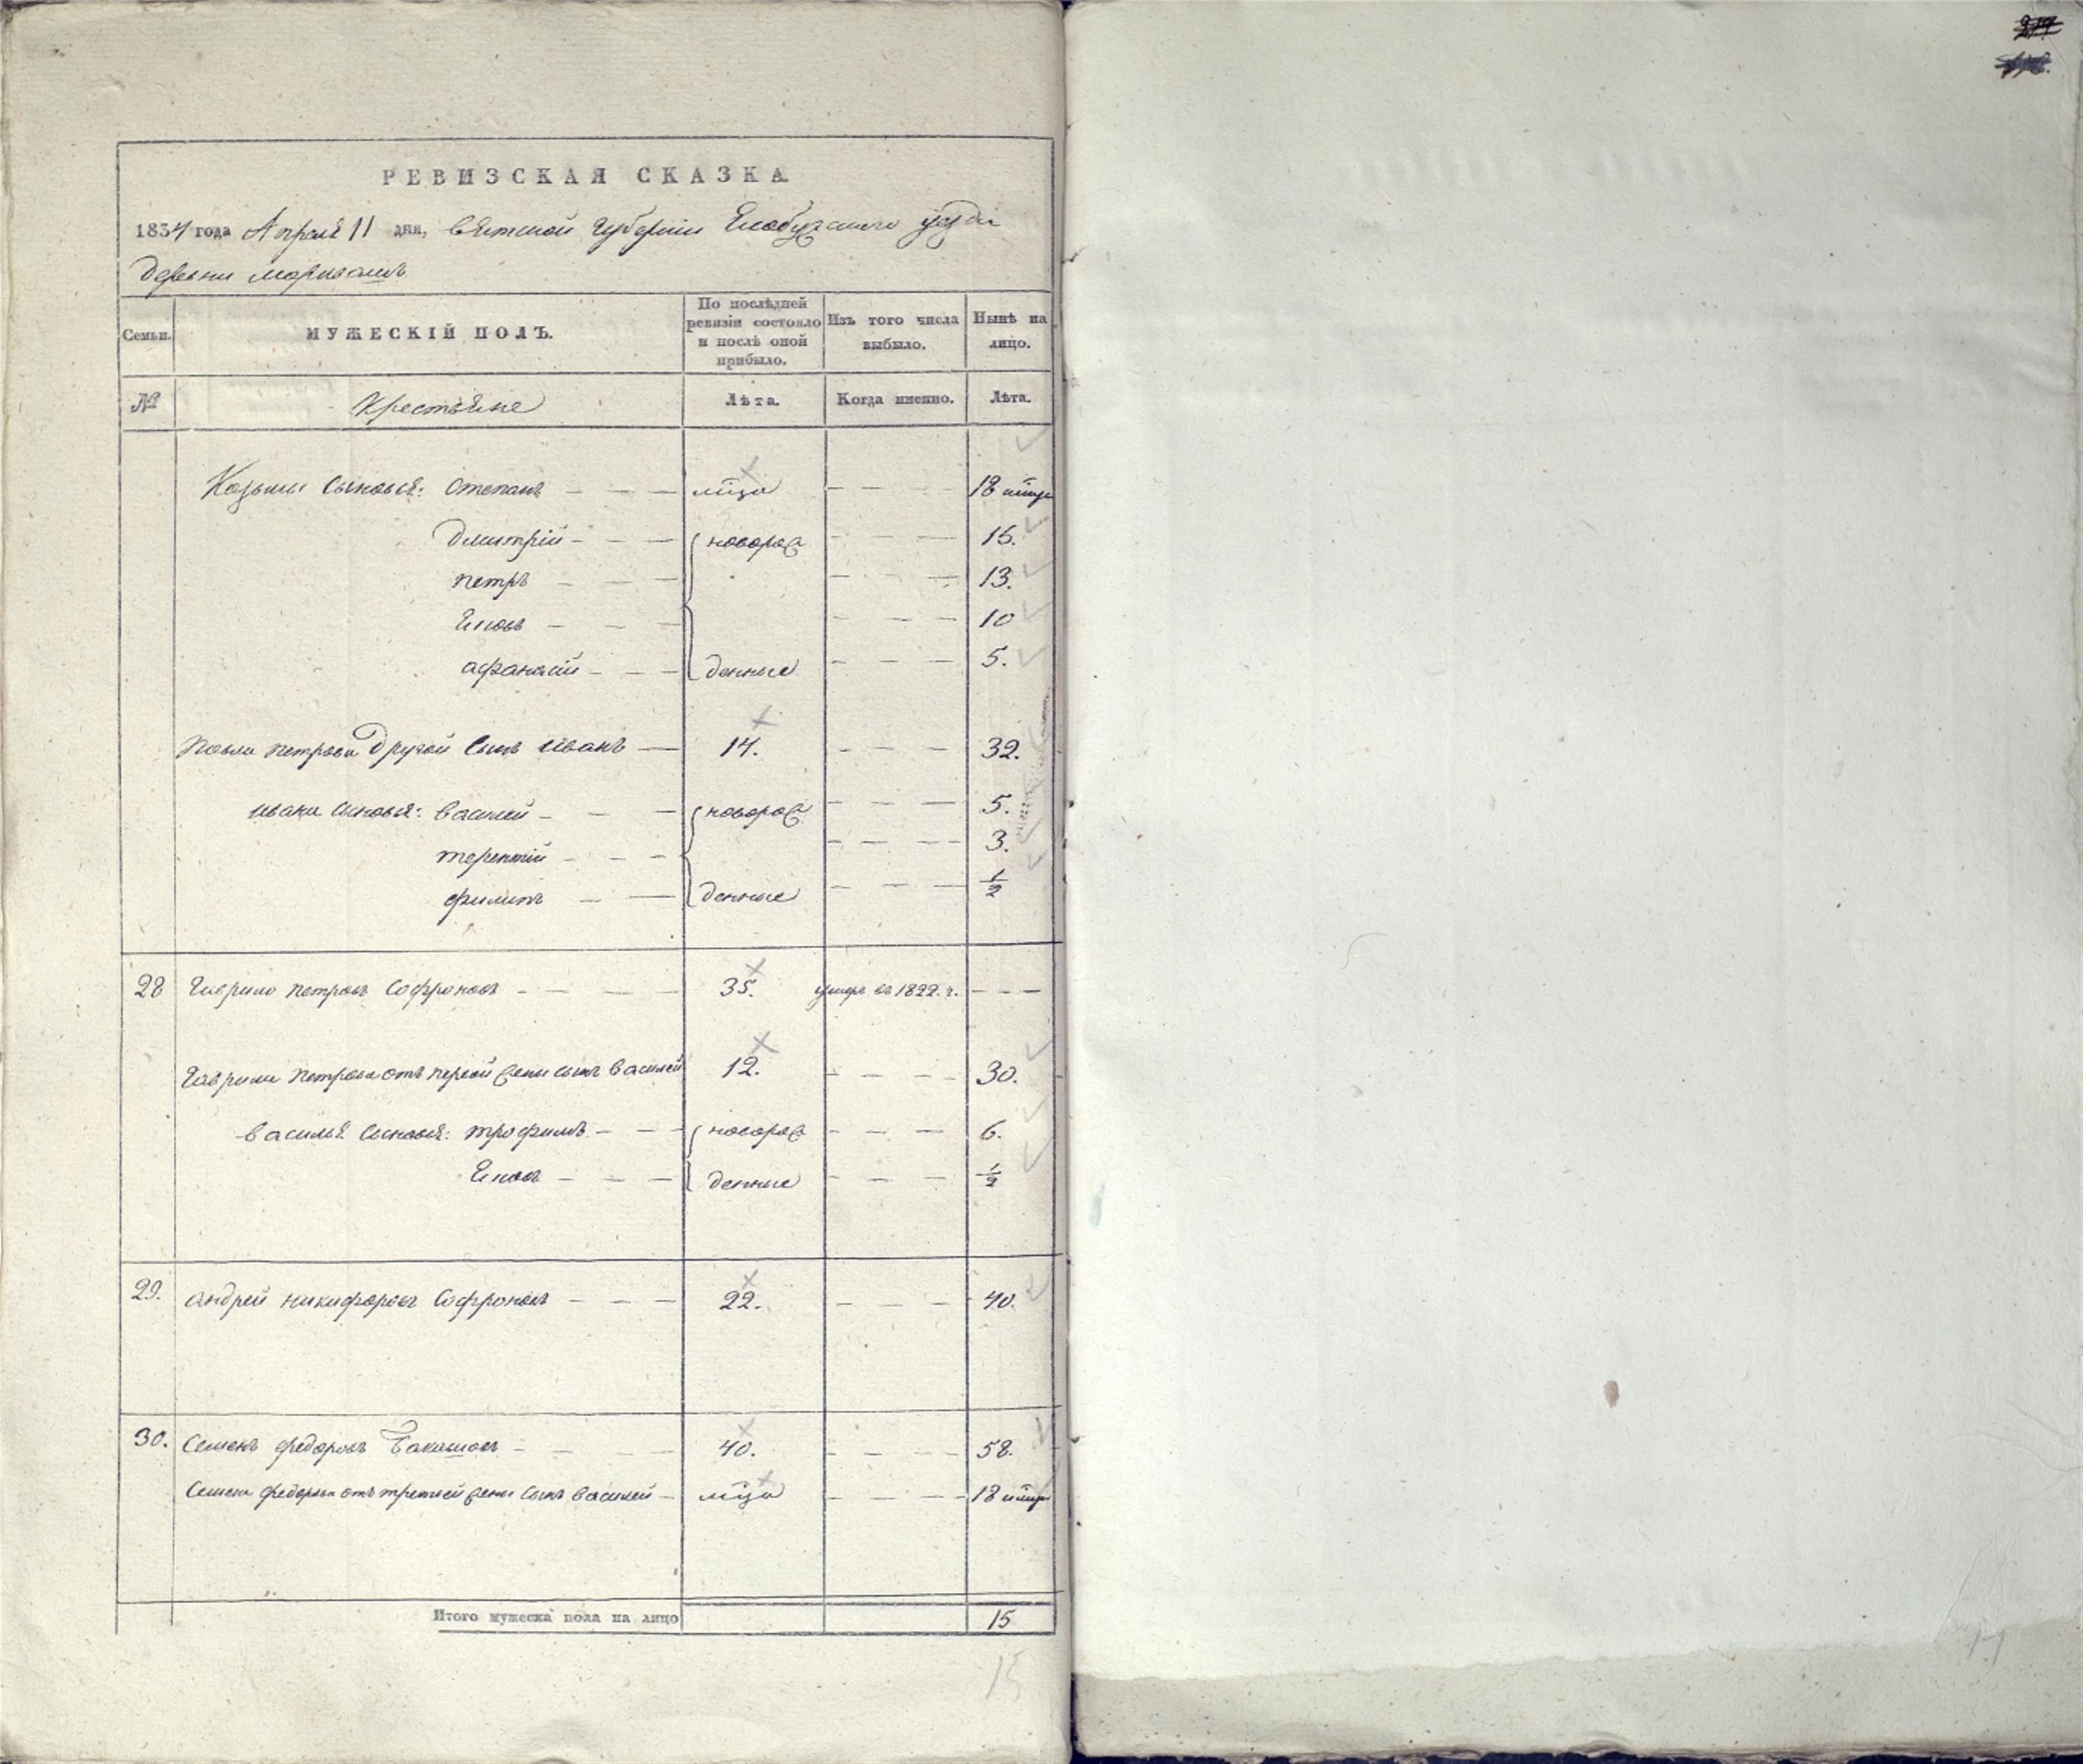 РЕВИЗСКАЯ СКАЗКА
1834 года Апреля 11 дня, Вятской Губернии Елабужского уезда
деревни
Семьи. МУЖЕСКІЙ ПОЛЪ. По послѣдней ревизіи состояло и послѣ оной прибыло. Изъ того числа выбыло. Нынѣ на лицо.
№ Крестьяне Лѣта. Когда именно. Лѣта.
Козьмы сыновья: Степанъ — — — — — — 18
Дмитрій — — — новоро — — — 15.
Петръ — — — — — — 13.
— — — — — — 10
Афанасій — — — денные — — — 5.
Павла Петрова другой сынъ Иванъ — 14. — — — 32.
Ивана сыновья: Василей — — — новоро — — — 5.
Терентій — — — — — — 3.
Филипъ — — денные — — — 1/2
28 Гаврило Петровъ Софроновъ — — — 35. умеръ въ 1822. г. — — —
Гаврилы Петрова отъ первой жены сынъ Василей 12. — — — — 30.
Василья сыновья: Трофимъ — — — новоро — — — 6.
— — — денные — — — 1/2
29. Андрей Никифоровъ Софроновъ — — — 22. — — — 40.
30. Семенъ Федоровъ — — — 40. — — — 58.
Семена Федорова отъ третьей жены сынъ Василей — — — — 18
Итого мужеска пола на лицо 15
15